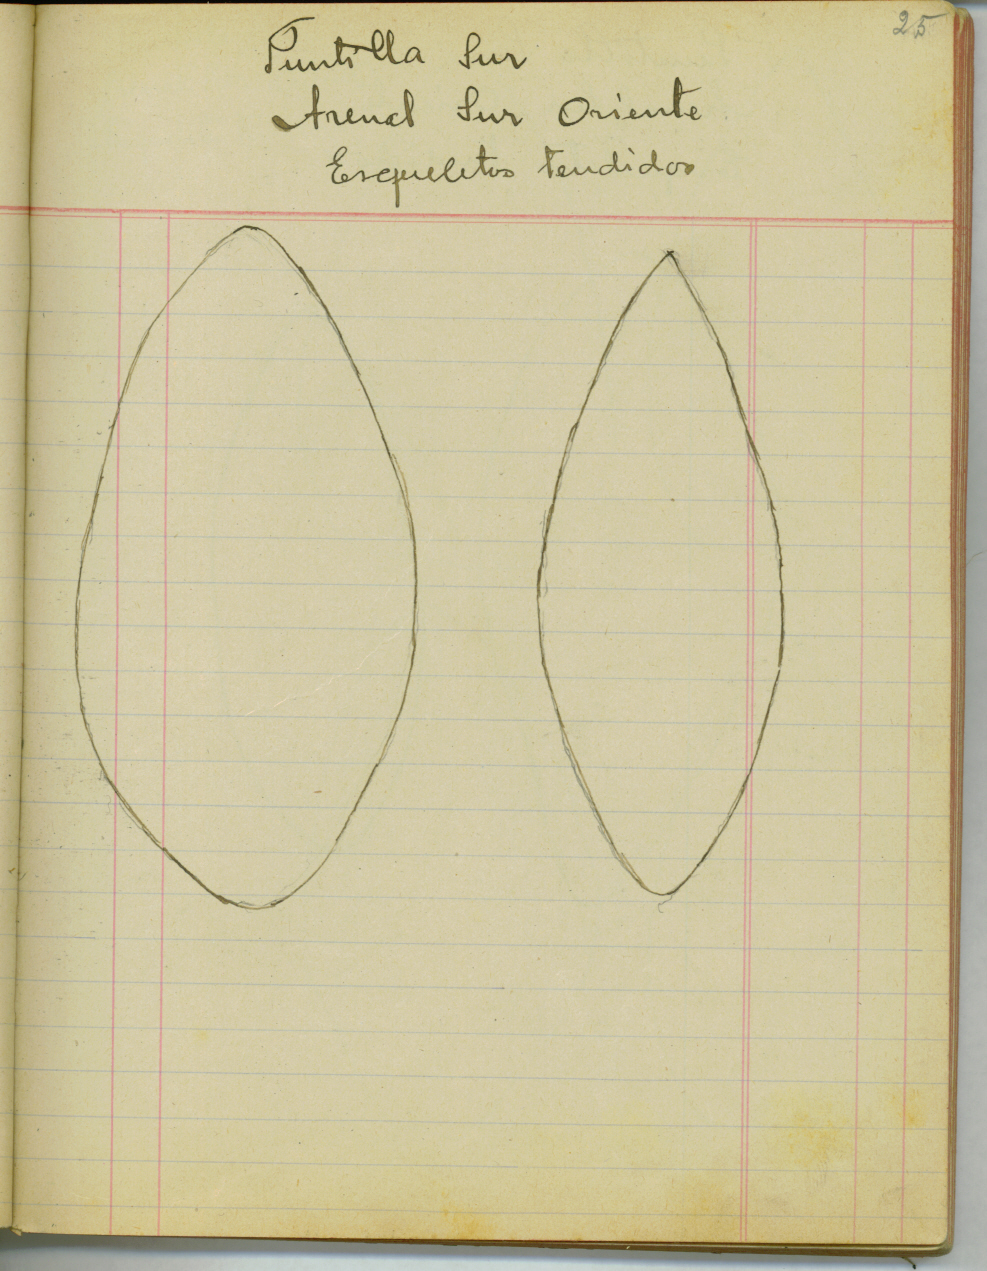 25
Puntilla Sur
Arenal Sur Oriente
Esqueletos tendidos